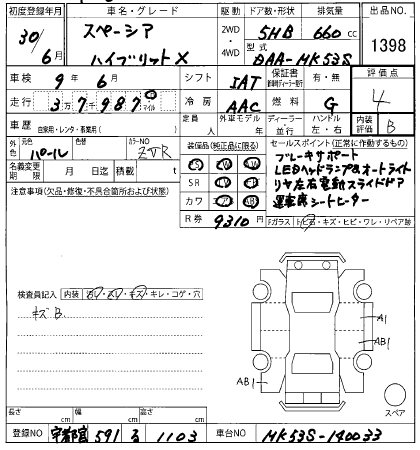 初度登録年月 車名・グレード 駆動 ドア数・形状 排気量 出品NO.
30/6月 スペーシア ハイブリットX 2WD・4WD 5HB 660cc 1398
型式 DAA-MK53S
車検 9年6月 シフト IAT 保証書 有・無 評価点 4
走行 3万7千987 km マイル 冷房 AAC 燃料 G
車歴 自家用・レンタ・事業用( ) 定員 人 外車モデル 年 ディーラー 並行 ハンドル 左・右 内装評価 B
外色 元色 パール 色替 カラーNO ZVR 装備品(純正品に限る) セールスポイント(正常に作動するもの)
名義変更期限 月 日迄 積載 t
ブレーキサポート
LEDヘッドランプ&オートライト
リヤ左右電動スライドドア
運転席シートヒーター
注意事項(欠品・修復・不具合箇所および状態)
SR
カワ
R券 9310円 Fガラス トビ石・キズ・ヒビ・ワレ・リペア跡
検査員記入 内装 コレ・スレ・キズ・キレ・コゲ・穴
キズB
A1
AB1
AB1
スペア
長さ cm 幅 cm 高さ cm
登録NO 宇都宮 591 る 1103 車台NO MK53S-140033